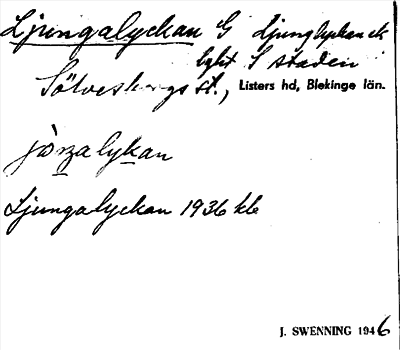 Ljungalyckan G Ljunglyckan ek
bglt S staden
Sölvesborgs st., Listers hd, Blekinge län.
jòŋalykan
Ljungalyckan 1936 kb
J. SWENNING 1946